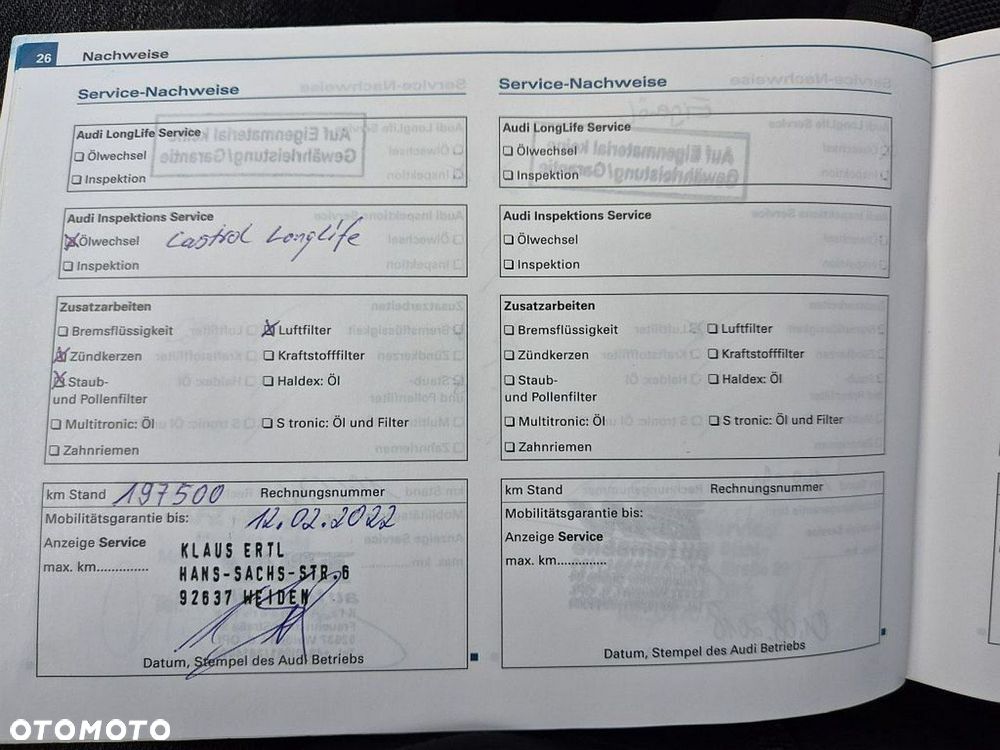 26 Nachweise
Service-Nachweise
Audi LongLife Service
❏ Ölwechsel
❏ Inspektion
Audi Inspektions Service
☒ Ölwechsel Castrol LongLife
❏ Inspektion
Zusatzarbeiten
❏ Bremsflüssigkeit ☒ Luftfilter
☒ Zündkerzen ❏ Kraftstofffilter
☒ Staub- ❏ Haldex: Öl
und Pollenfilter
❏ Multitronic: Öl ❏ S tronic: Öl und Filter
❏ Zahnriemen
km Stand 197500 Rechnungsnummer
Mobilitätsgarantie bis: 12.02.2022
Anzeige Service
max. km..............
KLAUS ERTL
HANS-SACHS-STR.6
92637 WEIDEN
Datum, Stempel des Audi Betriebs
Service-Nachweise
Audi LongLife Service
❏ Ölwechsel
❏ Inspektion
Audi Inspektions Service
❏ Ölwechsel
❏ Inspektion
Zusatzarbeiten
❏ Bremsflüssigkeit ❏ Luftfilter
❏ Zündkerzen ❏ Kraftstofffilter
❏ Staub- ❏ Haldex: Öl
und Pollenfilter
❏ Multitronic: Öl ❏ S tronic: Öl und Filter
❏ Zahnriemen
km Stand Rechnungsnummer
Mobilitätsgarantie bis:
Anzeige Service
max. km..............
Datum, Stempel des Audi Betriebs
OTOMOTO